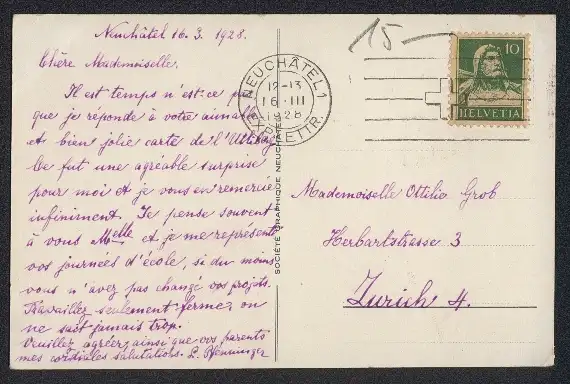 Neuchâtel 16.3.1928.
Chère Mademoiselle.
Il est temps n'est-ce pas
que je réponde à votre aimable
et bien jolie carte de l'Utliberg
Ce fut une agréable surprise
pour moi et je vous en remercie
infiniment. Je pense souvent
à vous Melle et je me représente
vos journées d'école, si du moins
vous n'avez pas changé vos projets.
Travaillez seulement ferme, on
ne sait jamais trop.
Veuillez agréer ainsi que vos parents
mes cordiales salutations. L. Pfenninger
SOCIÉTÉ GRAPHIQUE NEUCHÂTEL
NEUCHÂTEL 1
12-13
16.III
1928
EXP. LETTR.
15
10
HELVETIA
Mademoiselle Ottilia Grob
Herbartstrasse 3
Zurich 4.